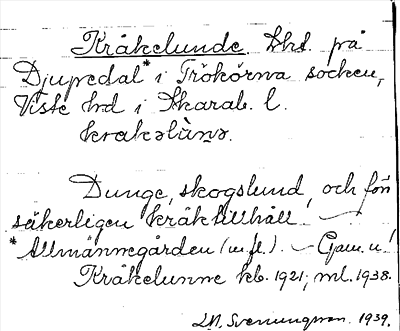 Kråkelunde. Lht. på
Djupedal* i Trökörna socken,
Viste hd i Skarab. l.
krakəlùnə.
Dunge, skogslund, och förr
säkerligen kråktillhåll.
*Allmännegården (m.fl.). – Gam. u!
Kråkelunne kb. 1921; ml. 1938.
Svenungsson. 1939.